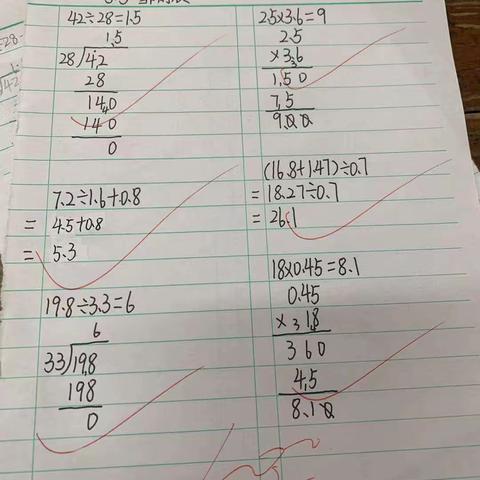 42÷28=1.5
1.5
28/42
28
140
140
0
7.2÷1.6+0.8
= 4.5+0.8
= 5.3
19.8÷3.3=6
6
33/19.8
198
0
2.5×3.6=9
2.5
×3.6
1.50
7.5
9.00
(16.8+1.47)÷0.7
= 18.27÷0.7
= 26.1
18×0.45=8.1
0.45
× 18
360
4.5
8.10